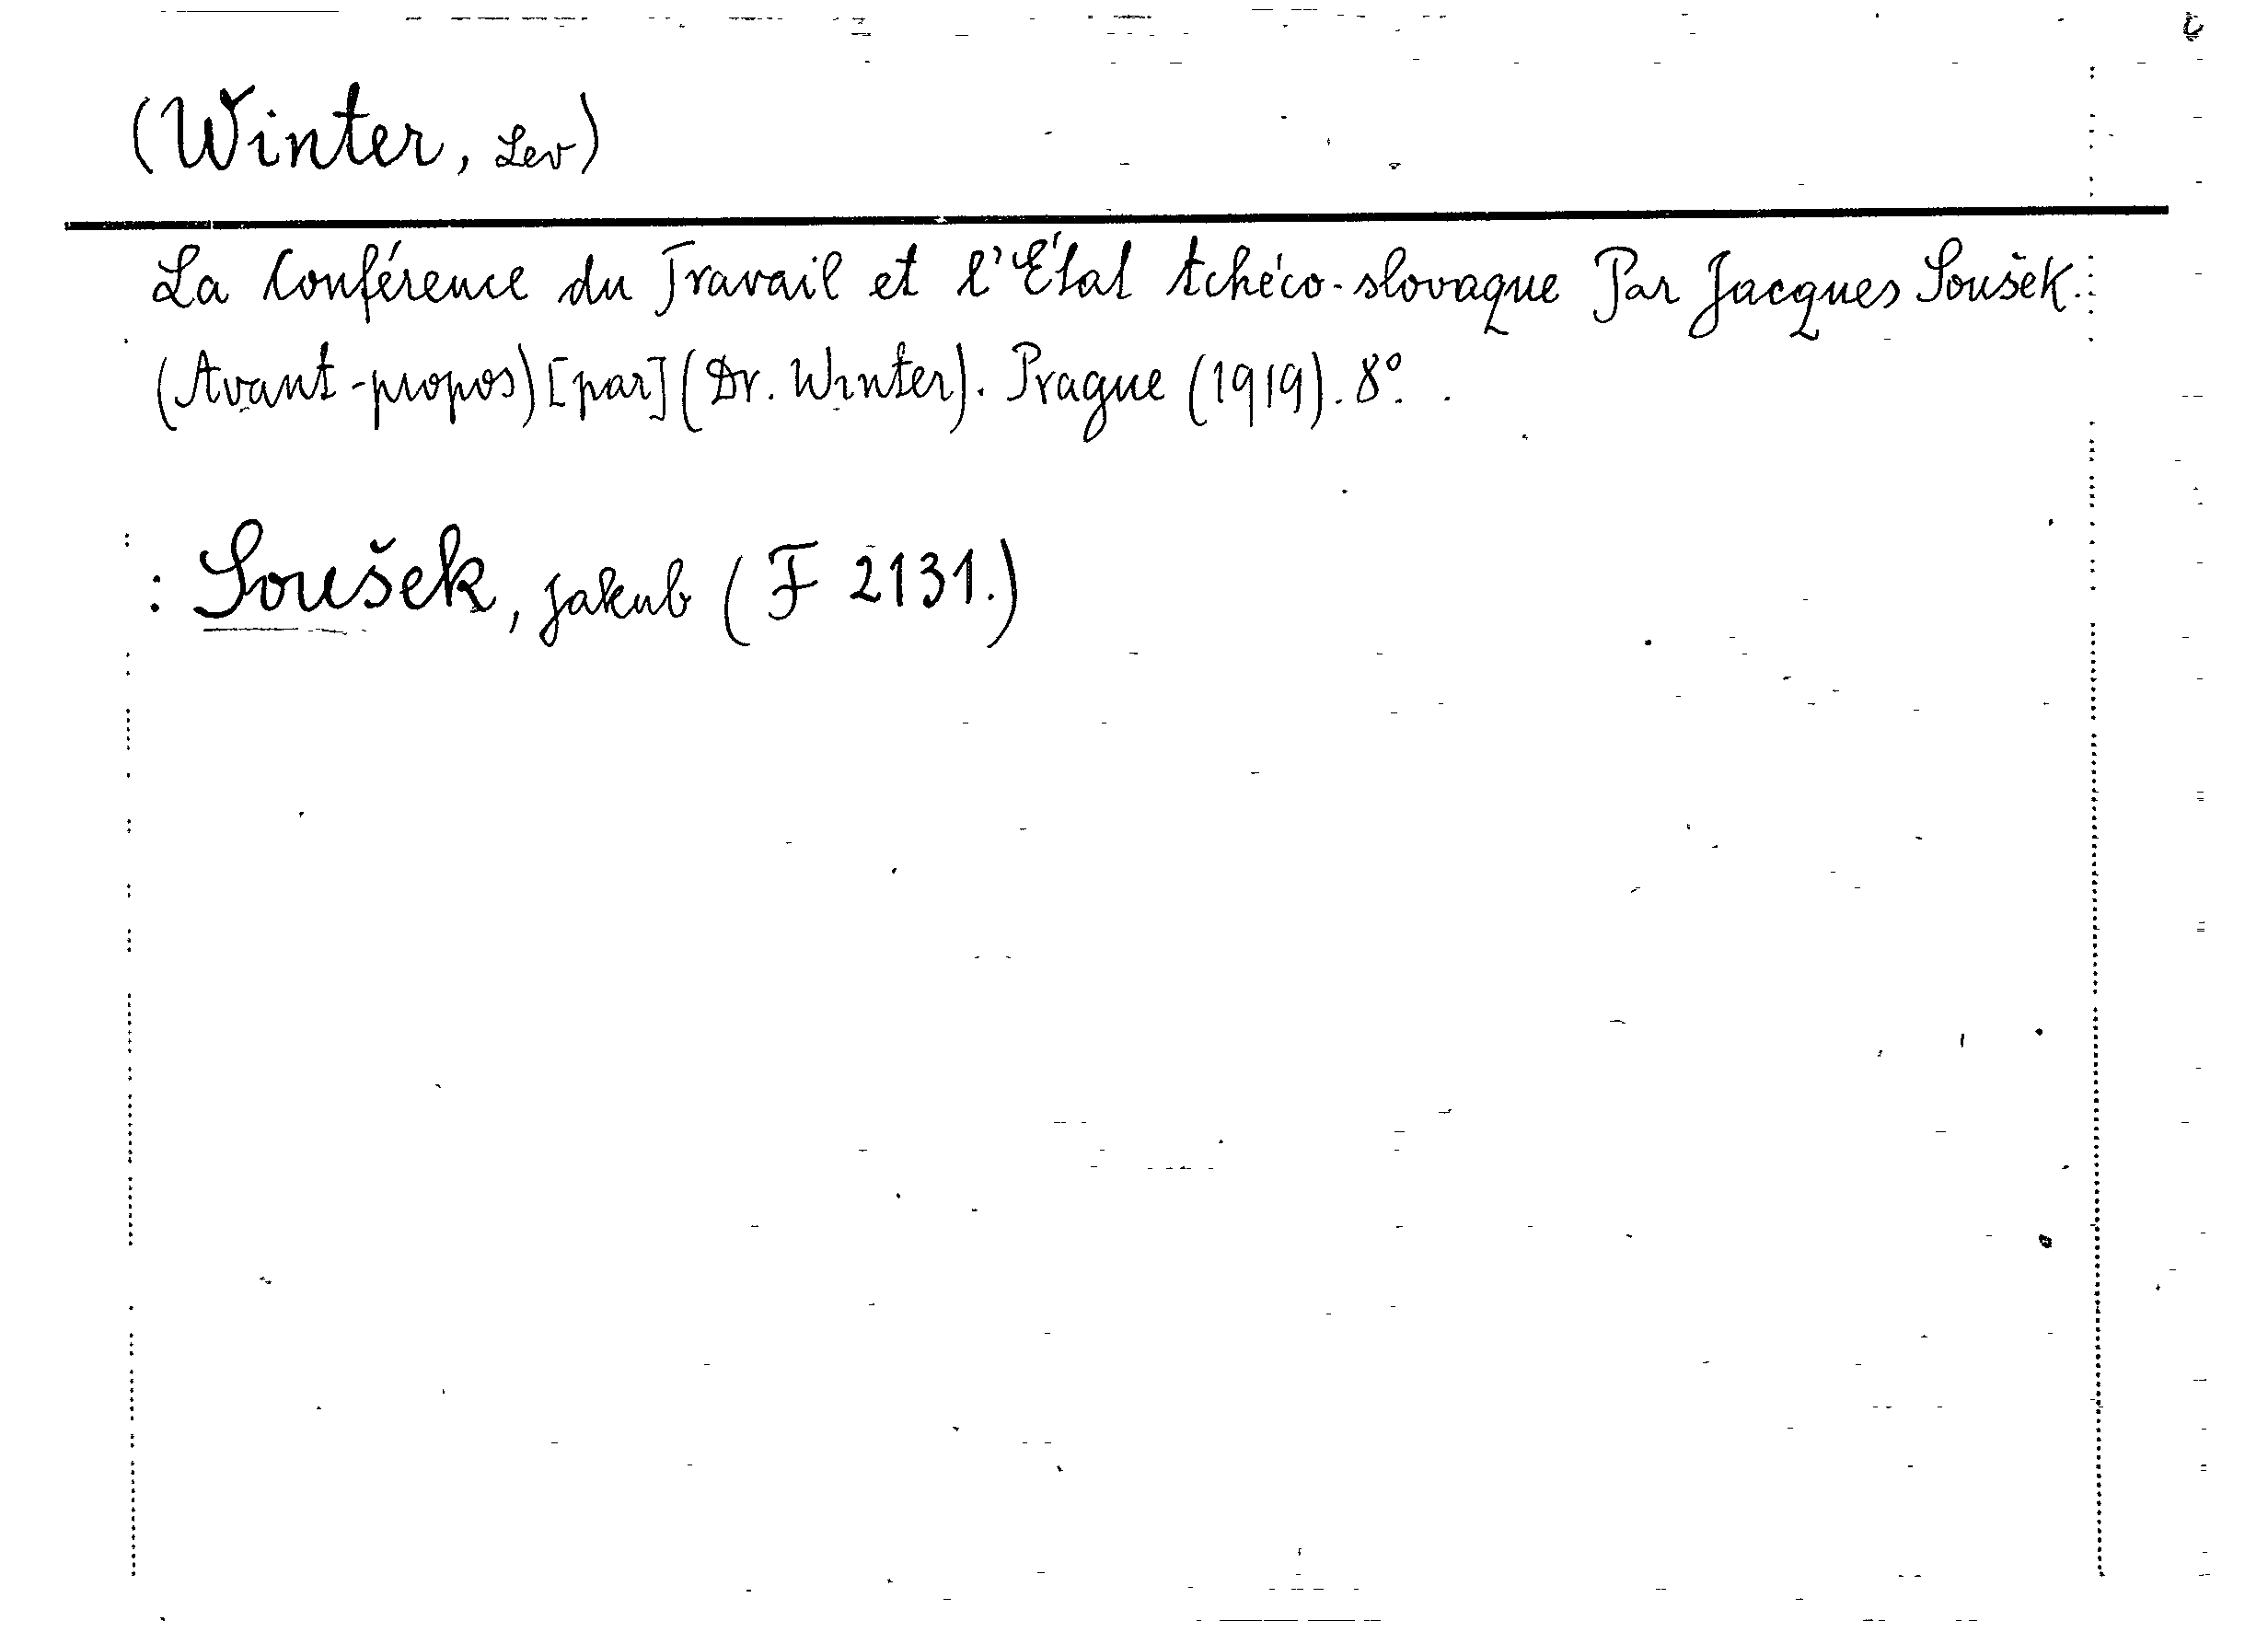 (Winter, Lev)
La Conférence du Travail et l'État tchéco-slovaque Par Jacques Soušek.
(Avant-propos) [par] (Dr. Winter). Prague (1919). 8°.
: Soušek, Jakub (F 2131.)